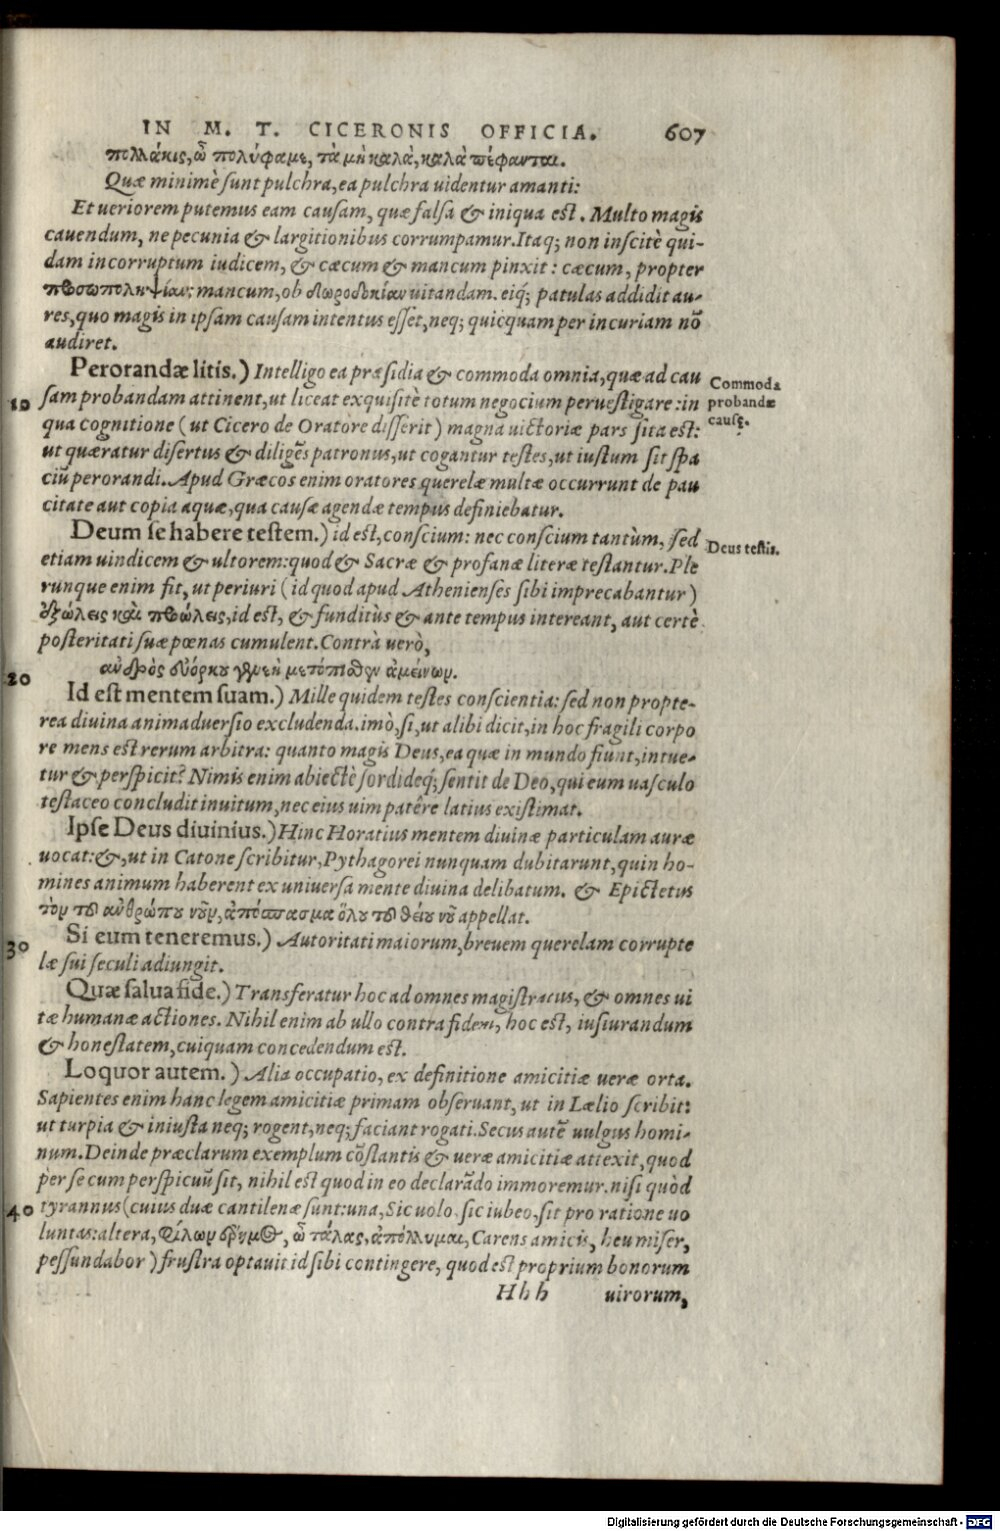 IN M. T. CICERONIS OFFICIA. 607
πολλάκις, ὦ πολύφαμε, τὰ μὴ καλὰ, καλὰ πέφανται.
Quæ minimè sunt pulchra, ea pulchra uidentur amanti:
Et ueriorem putemus eam causam, quæ falsa & iniqua est. Multo magis
cauendum, ne pecunia & largitionibus corrumpamur. Itaq; non inscitè qui-
dam incorruptum iudicem, & cæcum & mancum pinxit: cæcum, propter
προσωποληψίαν: mancum, ob δωροδοκίαν uitandam. eiq; patulas addidit au-
res, quo magis in ipsam causam intentus esset, neq; quicquam per incuriam nō
audiret.
Perorandæ litis.) Intelligo ea præsidia & commoda omnia, quæ ad cau
Commoda
10 sam probandam attinent, ut liceat exquisitè totum negocium peruestigare: in
probandæ
qua cognitione (ut Cicero de Oratore disserit) magna uictoriæ pars sita est:
causę.
ut quæratur disertus & diligēs patronus, ut cogantur testes, ut iustum sit spa
ciū perorandi. Apud Græcos enim oratores querelæ multæ occurrunt de pau
citate aut copia aquæ, qua causæ agendæ tempus definiebatur.
Deum se habere testem.) id est, conscium: nec conscium tantùm, sed
Deus testis.
etiam uindicem & ultorem: quod & Sacræ & profanæ literæ testantur. Ple
runque enim fit, ut periuri (id quod apud Athenienses sibi imprecabantur)
ἐξώλεις καὶ προώλεις, id est, & funditùs & ante tempus intereant, aut certè
posteritati suæ pœnas cumulent. Contrà uerò,
20 ἀνδρὸς εὐόρκου γενεὴ μετόπισθεν ἀμείνων.
Id est mentem suam.) Mille quidem testes conscientia: sed non propte-
rea diuina animaduersio excludenda. imò, si, ut alibi dicit, in hoc fragili corpo
re mens est rerum arbitra: quanto magis Deus, ea quæ in mundo fiunt, intue-
tur & perspicit? Nimis enim abiectè sordideq; sentit de Deo, qui eum uasculo
testaceo concludit inuitum, nec eius uim patêre latius existimat.
Ipse Deus diuinius.) Hinc Horatius mentem diuinæ particulam auræ
uocat: &, ut in Catone scribitur, Pythagorei nunquam dubitarunt, quin ho-
mines animum haberent ex uniuersa mente diuina delibatum. & Epictetus
τὸν τοῦ ἀνθρώπου νοῦν, ἀπόσπασμα ὅλου τοῦ θείου νοῦ appellat.
30 Si eum teneremus.) Autoritati maiorum, breuem querelam corrupte
læ sui seculi adiungit.
Quæ salua fide.) Transferatur hoc ad omnes magistratus, & omnes ui
tæ humanæ actiones. Nihil enim ab ullo contra fidem, hoc est, iusiurandum
& honestatem, cuiquam concedendum est.
Loquor autem.) Alia occupatio, ex definitione amicitiæ ueræ orta.
Sapientes enim hanc legem amicitiæ primam obseruant, ut in Lælio scribit:
ut turpia & iniusta neq; rogent, neq; faciant rogati. Secus autē uulgus homi-
num. Deinde præclarum exemplum cōstantis & ueræ amicitiæ attexit, quod
per se cum perspicuū sit, nihil est quod in eo declarādo immoremur. nisi quòd
40 tyrannus (cuius duæ cantilenæ sunt: una, Sic uolo, sic iubeo, sit pro ratione uo
luntas: altera, Φίλων ἔρημος, ὦ τάλας, ἀπόλλυμαι, Carens amicis, heu miser,
pessundabor) frustra optauit id sibi contingere, quod est proprium bonorum
Hhh uirorum,
Digitalisierung gefördert durch die Deutsche Forschungsgemeinschaft - DFG